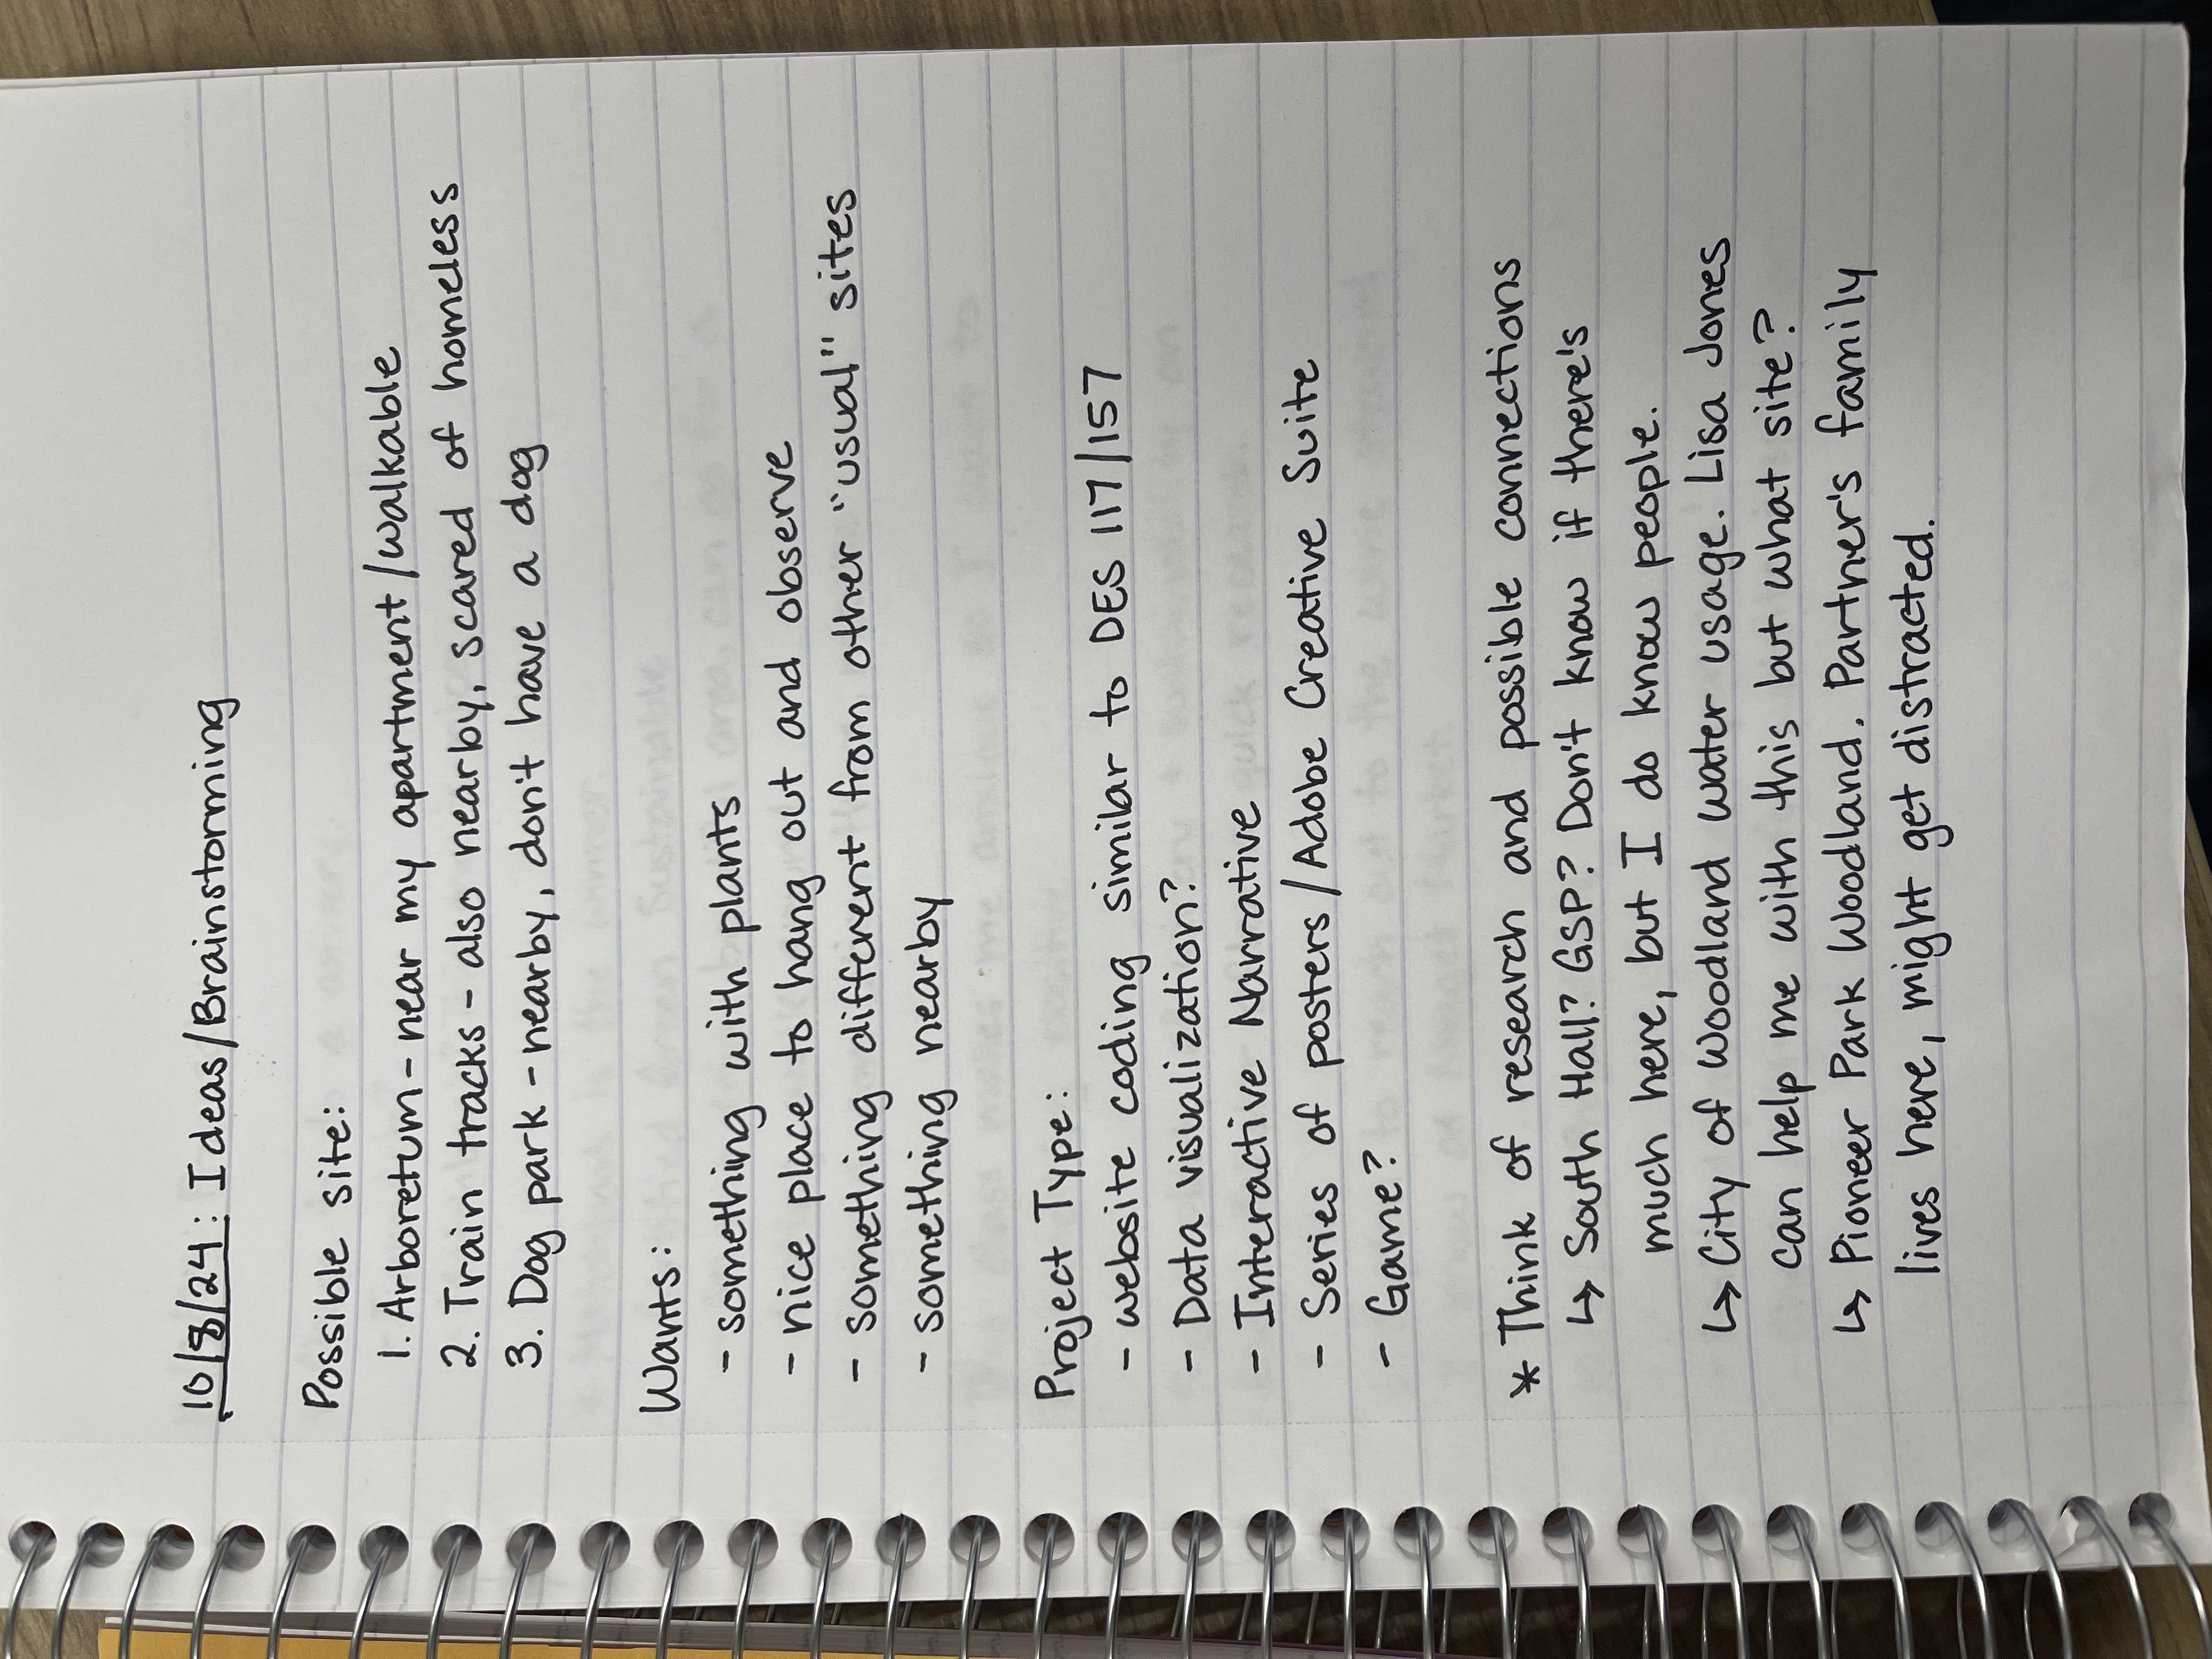 10/8/24: Ideas/Brainstorming
Possible site:
1. Arboretum - near my apartment/walkable
2. Train tracks - also nearby, scared of homeless
3. Dog park - nearby, don't have a dog
Wants:
- something with plants
- nice place to hang out and observe
- something different from other "usual" sites
- something nearby
Project Type:
- website coding similar to DES 117/157
- Data visualization?
- Interactive Narrative
- Series of posters/Adobe Creative Suite
- Game?
* Think of research and possible connections
↳ South Hall? GSP? Don't know if there's
much here, but I do know people.
↳ City of Woodland water usage. Lisa Jones
can help me with this but what site?
↳ Pioneer Park Woodland. Partner's family
lives here, might get distracted.